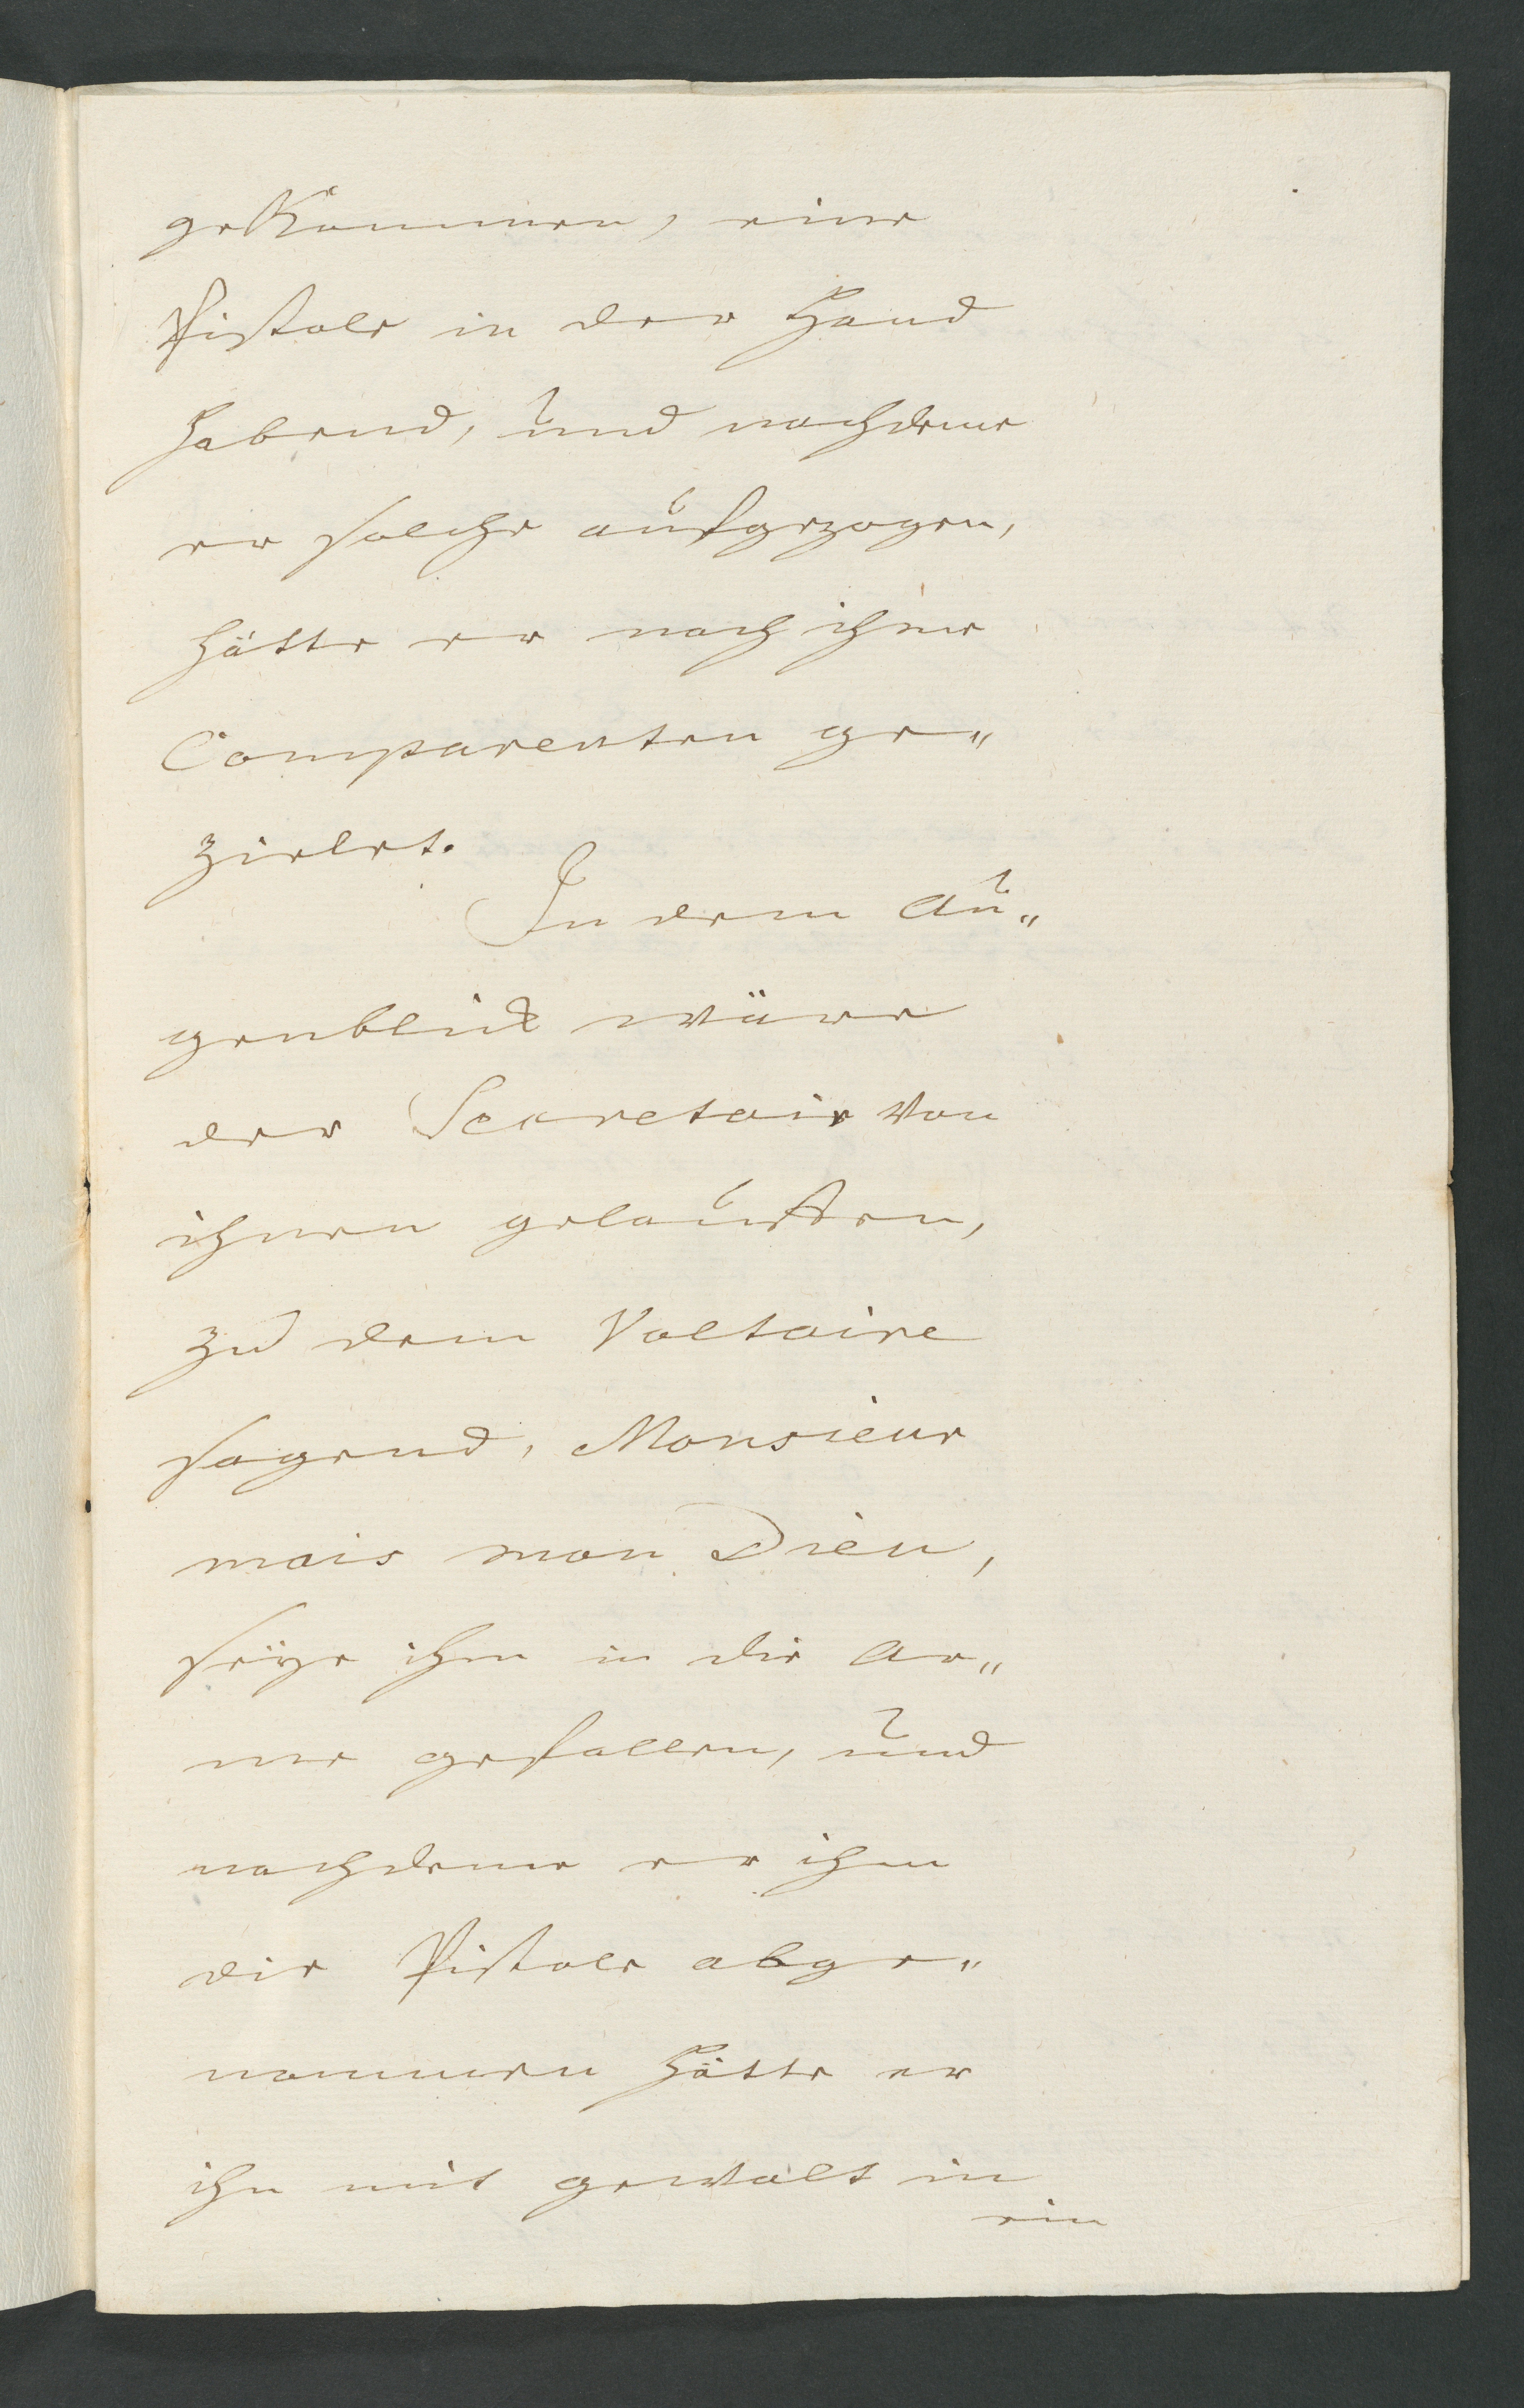 gekommen, eine
Pistole in der Hand
habend, und nachdeme
er solche aufgezogen,
hätte er nach ihme
Comparenten ge„
zielet.
In dem Au„
genblick wäre
der Secretair von
ihnen gelauffen,
zu dem Voltaire
sagend, Monsieur
mais mon Dieu,
seÿe ihm in die Ar„
me gefallen, und
nachdeme er ihm
die Pistole abge„
nommen hätte er
ihn mit gewalt in
ein